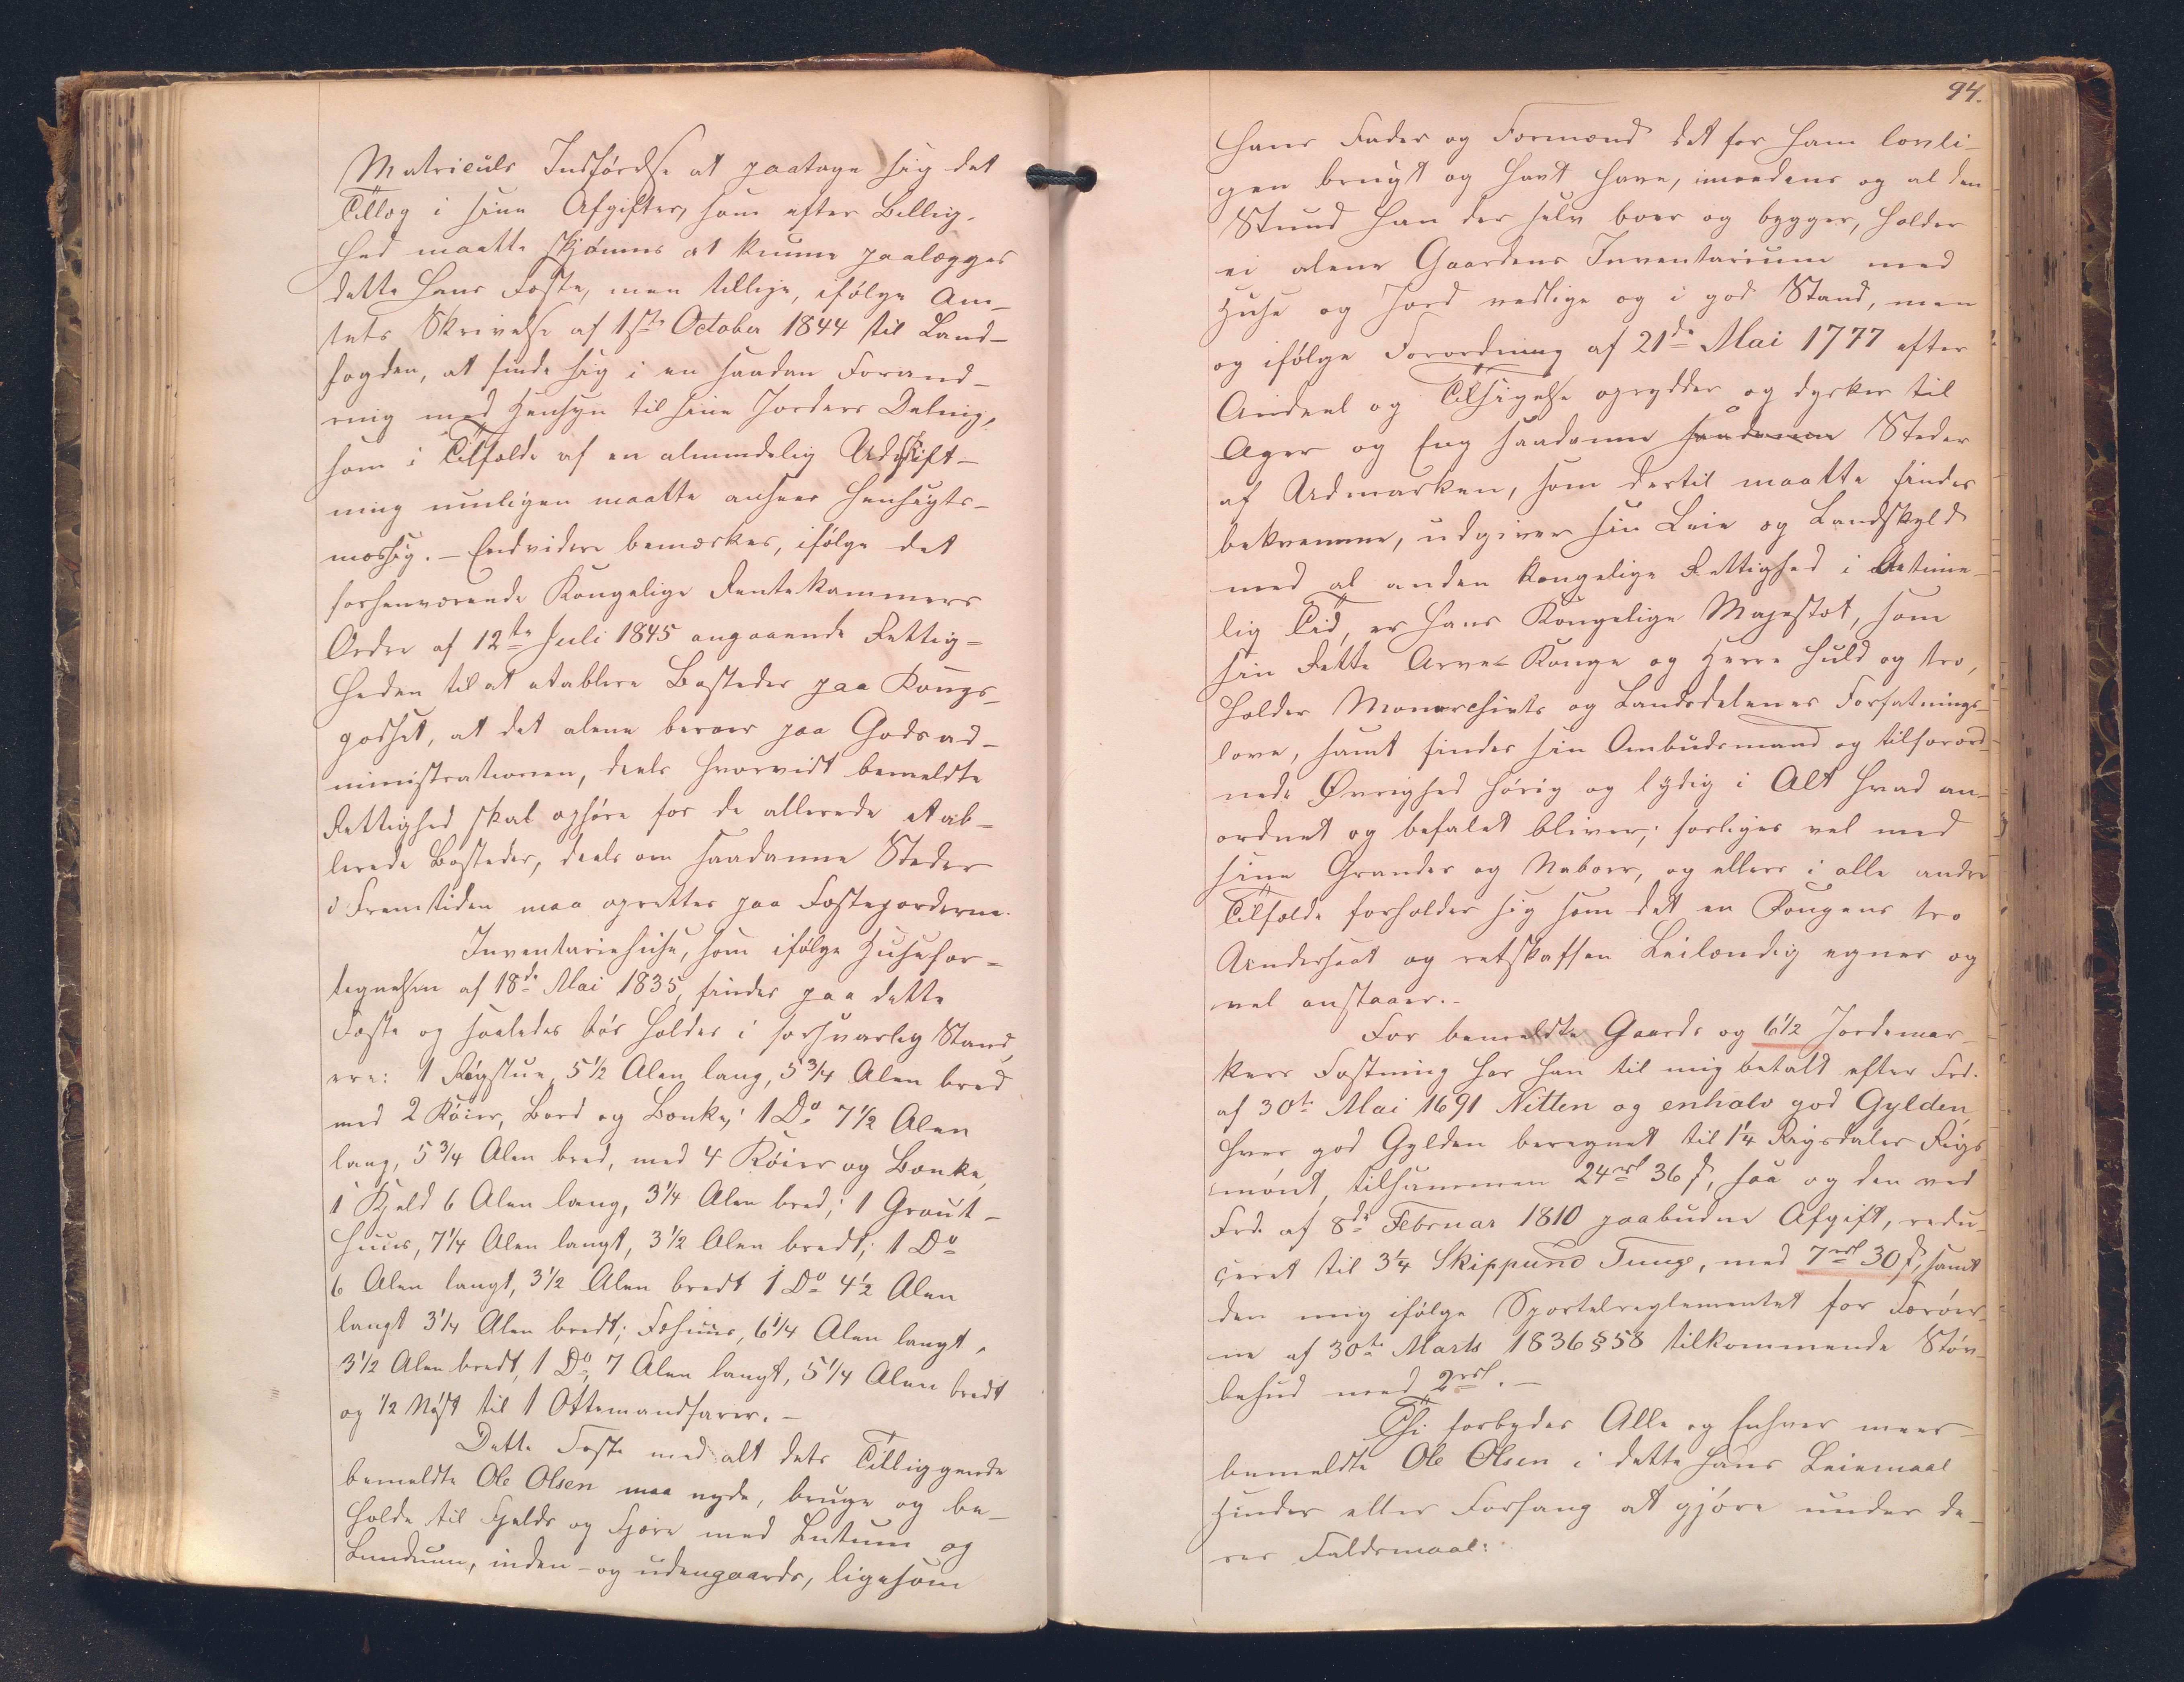 Matriculs Indførelse at paatage sig det
Tillæg i sine Afgifter, som efter Billig-
hed maatte skjønnes at kunne paalægges
dette hans Fæste, men tillige, ifølge Am-
tets Skrivelse af 1ste October 1844 til Land-
fogden, at finde sig i en saadan Forand-
ring med Hensyn til sine Jorders Deling,
som i Tilfælde af en almindelig Udskift-
ning muligen maatte ansees hensigts-
mæssig. – Endvidere bemærkes, ifølge det
forhenværende Kongelige Rentekammers
Ordre af 12te Juli 1845 angaaende Rettig-
heden til at etablere Bosteder paa Kongs-
godset, at det alene beroer paa Godsad-
ministrationen, deels hvorvidt bemeldte
Rettighed skal ophøre for de allerede etab-
lerede Bosteder, deels om saadanne Steder
i Fremtiden maa oprettes paa Fæstejorderne.
Inventariehuse, som ifølge Husefor-
tegnelsen af 18de Mai 1835, findes paa dette
Fæste og saaledes bør holdes i forsvarlig Stand,
ere: 1 Røgstue, 5 1/2 Alen lang, 5 3/4 Alen bred
med 2 Køier, Bord og Bænke; 1 Do 7 1/2 Alen
lang, 5 3/4 Alen bred, med 4 Køier og Bænke,
1 Kjeld 6 Alen lang, 3 1/4 Alen bred; 1 Grout-
huus, 7 1/4 Alen langt, 3 1/2 Alen bredt; 1 Do
6 Alen langt, 3 1/2 Alen bredt 1 Do 4 1/2 Alen
langt 3 1/4 Alen bredt; Fæhuus, 6 1/4 Alen langt,
3 1/2 Alen bredt, 1 Do, 7 Alen langt, 5 1/4 Alen bredt
og 1/2 Nøst til 1 Ottemandsfarer. –
Dette Fæste med alt dets Tilliggende
bemeldte Ole Olsen maa nyde, bruge og be-
holde til Fjelds og Fjære med Luttum og
Lunduum, inden- og udengaards, ligesom
94.
hans Fader og Formænd det før ham lovli-
gen brugt og havt have, imedens og al den
Stund han der selv boer og bygger, holder
ei alene Gaardens Inventarium med
Huse og Jord vedlige og i god Stand, men
og ifølge Forordning af 21de Mai 1777 efter
Andeel og Tilsigelse oprydder og dyrker til
Ager og Eng saadanne saadanne Steder
af Udmarken, som dertil maatte findes
bekvemme, udgiver sin Leie og Landskyld
med al anden kongelige Rettighed i betime-
lig Tid, er Hans Kongelige Majestæt, som
sin Rette Arve-Konge og Herre huld og tro,
holder Monarchiets og Landsdelenes Forfatnings-
love, samt findes sin Ombudsmand og tilforord-
nede Øvrighed hørig og lydig i Alt hvad an-
ordnet og befalet bliver; forliges vel med
sine Grander og Naboer, og ellers i alle andre
Tilfælde forholder sig som det en Kongens tro
Undersaat og retskaffen Leilænding egner og
vel anstaaer. –
For bemeldte Gaards og 6 1/2 Jordemar-
kers Fæstning har han til mig betalt efter Frd.
af 30te Mai 1691 Nitten og enhalv god Gylden,
hver god Gylden beregnet til 1 1/4 Rigsdaler Rigs-
mønt, tilsammen 24 rd 36 s, saa og den ved
Frd. af 8de Februar 1810 paabudne Afgift, redu-
ceret til 3 1/4 Skippund Tunge, med 7 rd 30 s, samt
den mig ifølge Sportelreglementet for Færøer-
ne af 30te Marts 1836 § 58 tilkommende Støv-
behud med 2 rd. –
Thi forbydes Alle og Enhver meer-
bemeldte Ole Olsen i dette hans Leiemaal
Hinder eller Forfang at gjøre under de-
res Faldsmaal: